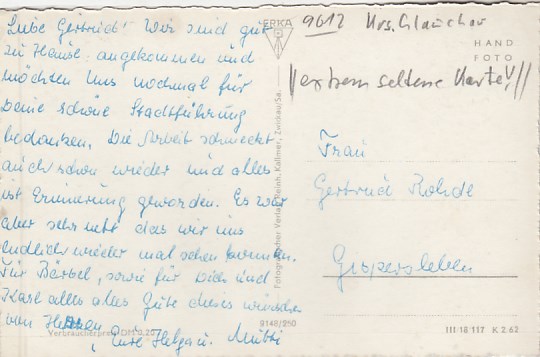 Liebe Gertrud! Wir sind gut
zu Hause angekommen und
möchten uns nochmal für
Deine schöne Stadtführung
bedanken. Die Arbeit schmeckt
auch schon wieder und alles
ist Erinnerung geworden. Es war
aber sehr nett das wir uns
endlich wieder mal sehen konnten.
Für Bärbel, sowie für Dich und
Karl alles alles Gute dieses wünschen
von Herzen, Eure Helga u. Mutti
Verbraucherpreis DM 0,20
ERKA
Fotografischer Verlag Reinh. Kallmer, Zwickau/Sa.
9148/250
9612 Krs. Glauchau
HAND
FOTO
extrem seltene Karte!!!
Frau
Gertrud Rohde
Gispersleben
III 18 117 K 2 62